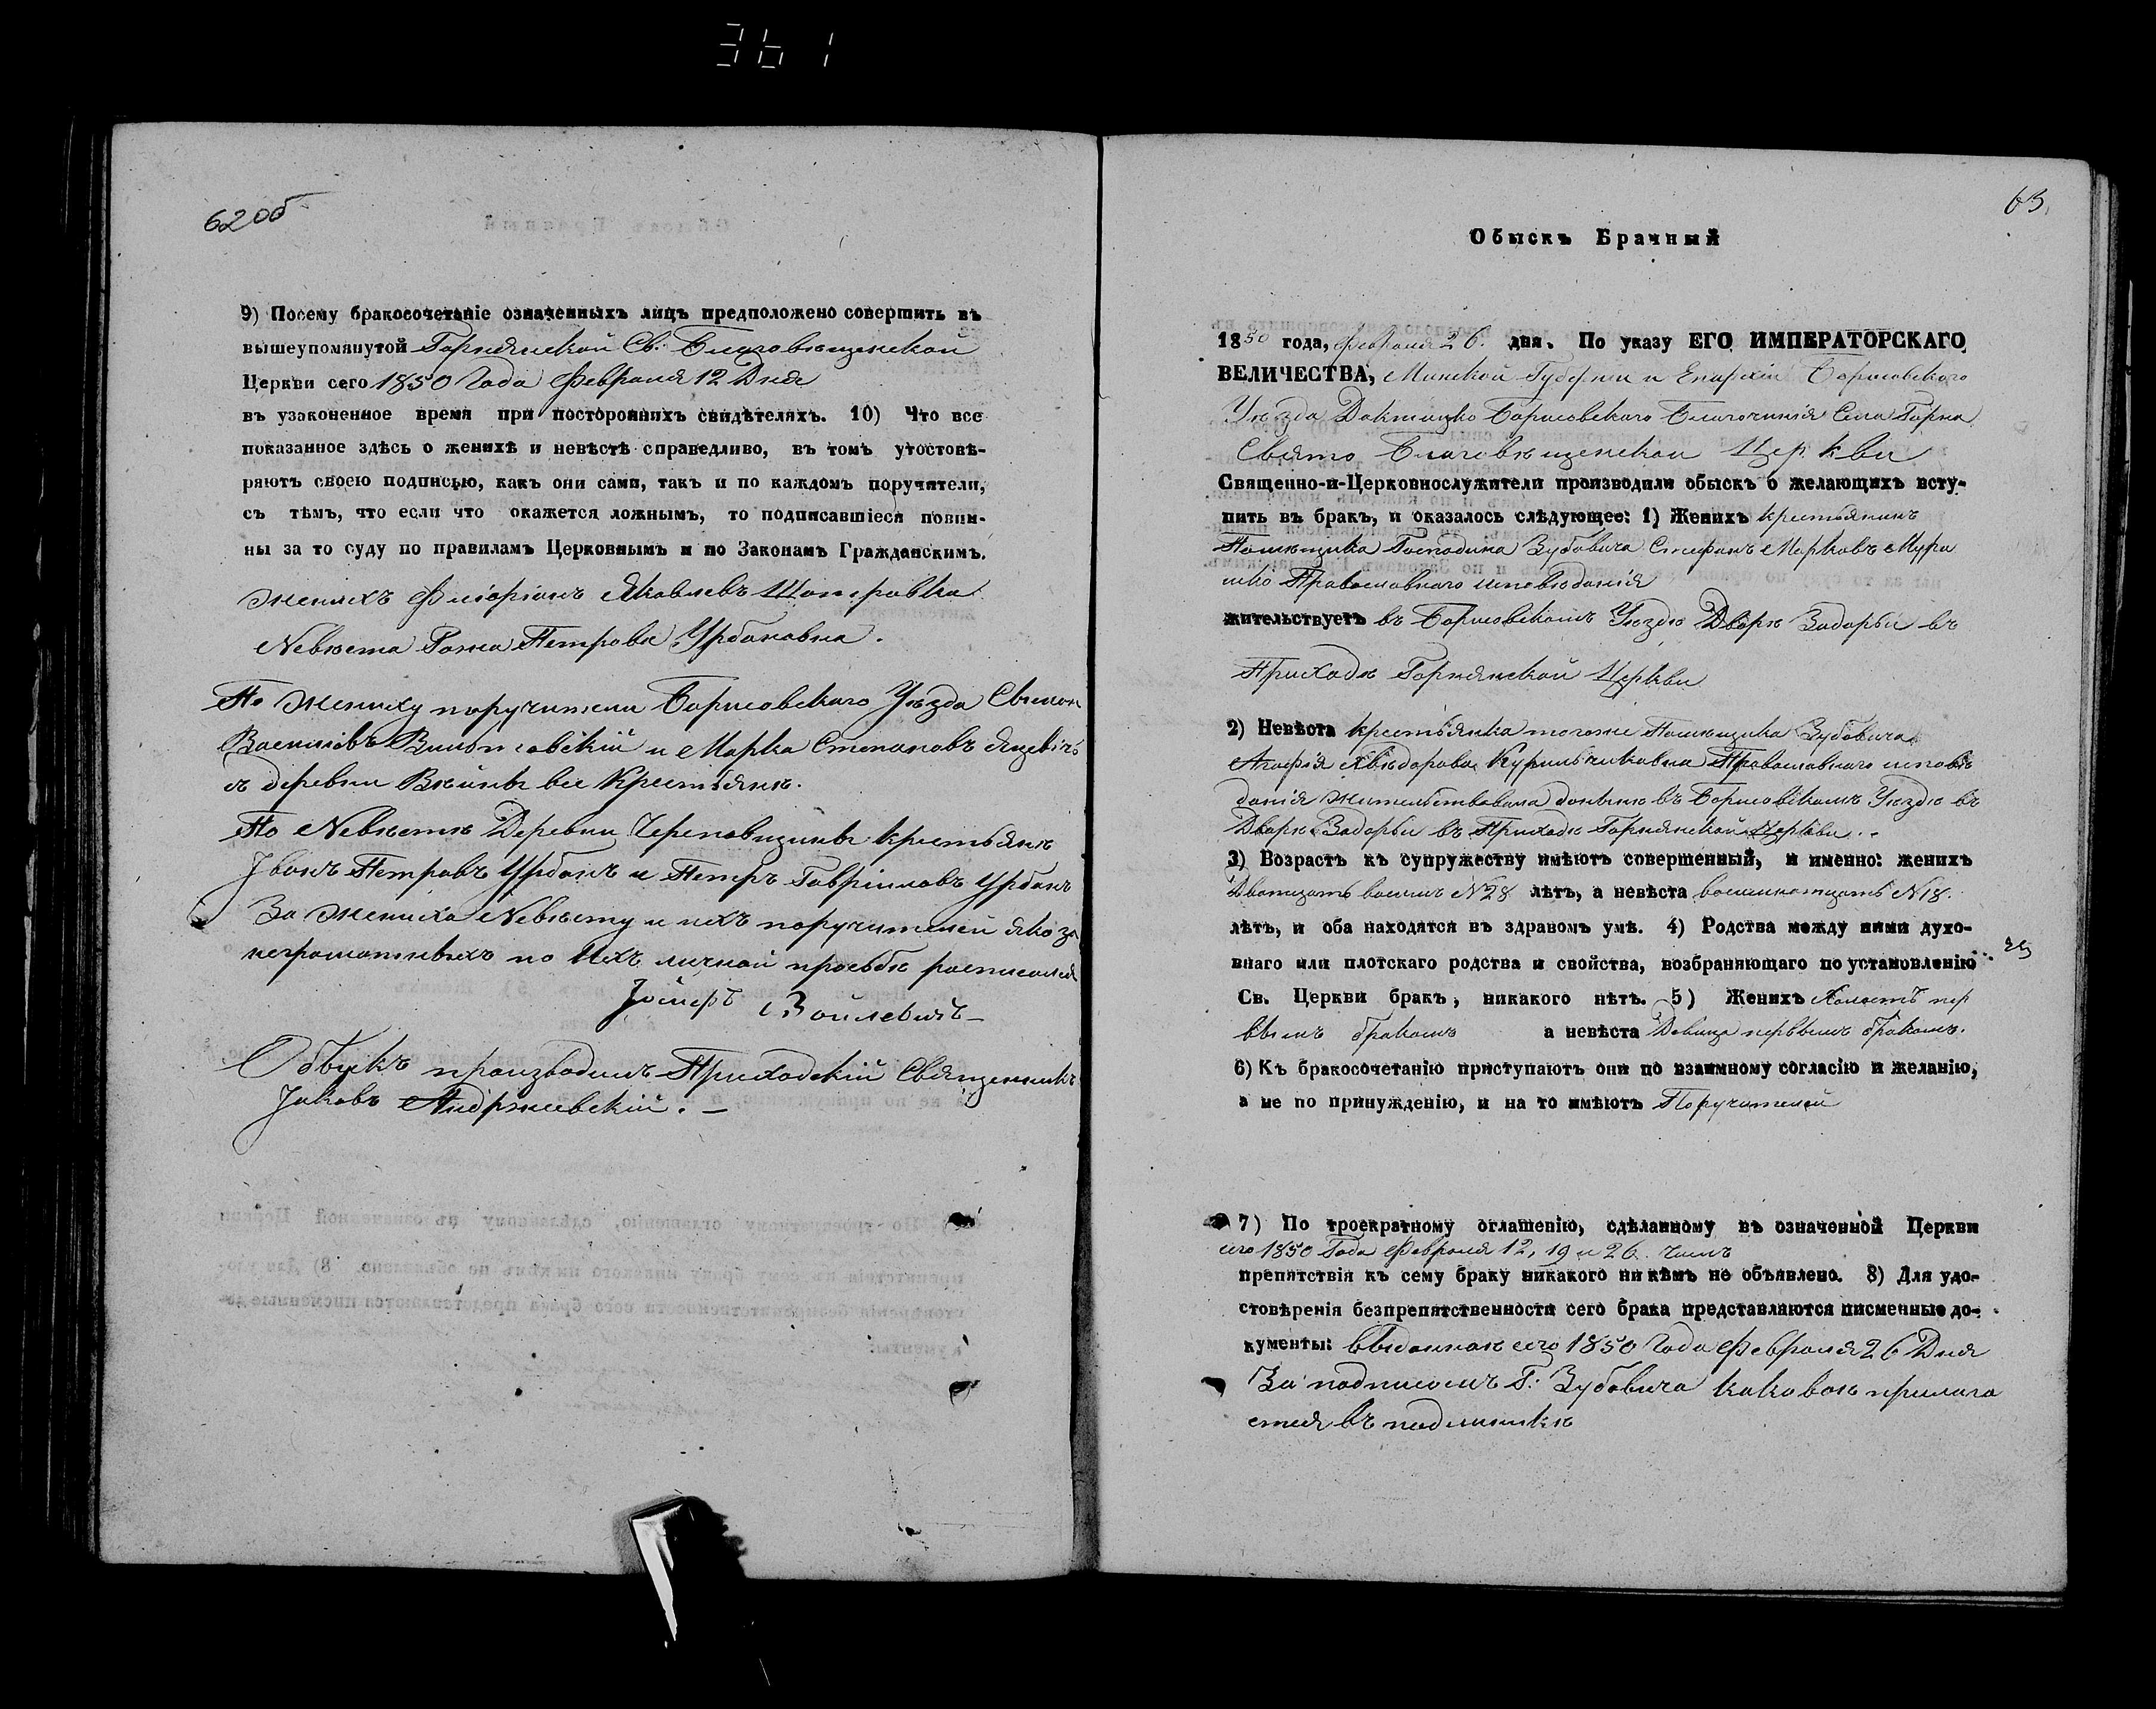 361
62об
9) Посему бракосочетаніе означенныхъ лицъ предположено совершить въ
вышеупомянутой Горнянской Св: Благовѣщенской
Церкви сего 1850 Года Февраля 12 Дня
въ узаконенное время при постороннихъ свидѣтеляхъ. 10) Что все
показанное здѣсь о женихѣ и невѣстѣ справедливо, въ томъ утостовѣ-
ряютъ своею подписью, какъ они сами, такъ и по каждомъ поручители,
съ тѣмъ, что если что окажется ложнымъ, то подписавшіеся повин-
ны за то суду по правиламъ Церковнымъ и по Законамъ Гражданскимъ.
женихъ Флоріанъ Яковлевъ
Невѣста Петрова Урбановна.
По жениху поручители Борисовскаго Уѣзда
и Марка Степановъ
деревни все Крестьянѣ.
По Невѣстѣ Деревни Череповщины крестьянѣ
Іванъ Петровъ Урбанъ и Петръ Гавріиловъ Урбанъ
За жениха Невѣсту и ихъ поручителей яко за
неграмотныхъ по Ихъ личной просьбѣ росписался
Іосифъ
Обыскъ производилъ Приходскій Священникъ
Іаковъ Андржеевскій. —
63.
Обыскъ Брачный
1850 года, Февраля 26. дня. По указу ЕГО ИМПЕРАТОРСКАГО
ВЕЛИЧЕСТВА, Минской Губерніи и Епархіи Борисовскаго
Уѣзда Докшицко Борисовскаго Благочинія Села Горна
Свято Благовѣщенской Церкви
Священно-и-Церковнослужители производили обыскъ о желающихъ всту-
пить въ бракъ, и оказалось слѣдующее: 1) Женихъ крестьянинъ
Помѣщика Господина Зубовича Стефанъ Марковъ Мура
шко Православнаго исповѣданія
жительствуетъ въ Борисовскомъ Уѣздѣ Дворѣ Задорьи въ
Приходѣ Горнянской Церкви
2) Невѣста крестьянка тогоже Помѣщика Зубовича
Агафія Хвѣдорова Курильчиковна Православнаго исповѣ
данія жительствовала донынѣ въ Борисовскомъ Уѣздѣ въ
Дворѣ Задорьи въ Приходѣ Горнянской Церкви. -
3) Возрастъ къ супружеству имѣютъ совершенный, и именно: женихъ
Дватцать восемь №28 лѣтъ, а невѣста восемнатцать №18.
лѣтъ, и оба находятся въ здравомъ умѣ. 4) Родства между ними духо-
внаго или плотскаго родства и свойства, возбраняющаго по установленію
Св. Церкви бракъ, никакого нѣтъ. 5) Женихъ Холостъ пер
вымъ бракомъ а невѣста Девица первымъ бракомъ.
6) Къ бракосочетанію приступаютъ они по взаимному согласію и желанію,
а не по принужденію, и на то имѣютъ Поручителей
7) По троекратному оглашенію, сдѣланному въ означенной Церкви
сего 1850 Года Февраля 12, 19 и 26. числъ
препятствія къ сему браку никакого ни кѣмъ не объявлено. 8) Для удо-
стовѣренія безпрепятственности сего брака представляются писменные до-
кументы: выданная сего 1850 Года Февраля 26 Дня
За подписомъ Г: Зубовича каковая прилага
ется въ подлинникѣ